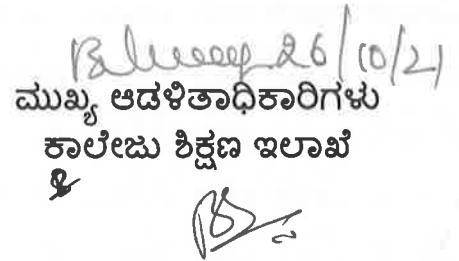 26/10/21
ಮುಖ್ಯ ಆಡಳಿತಾಧಿಕಾರಿಗಳು
ಕಾಲೇಜು ಶಿಕ್ಷಣ ಇಲಾಖೆ